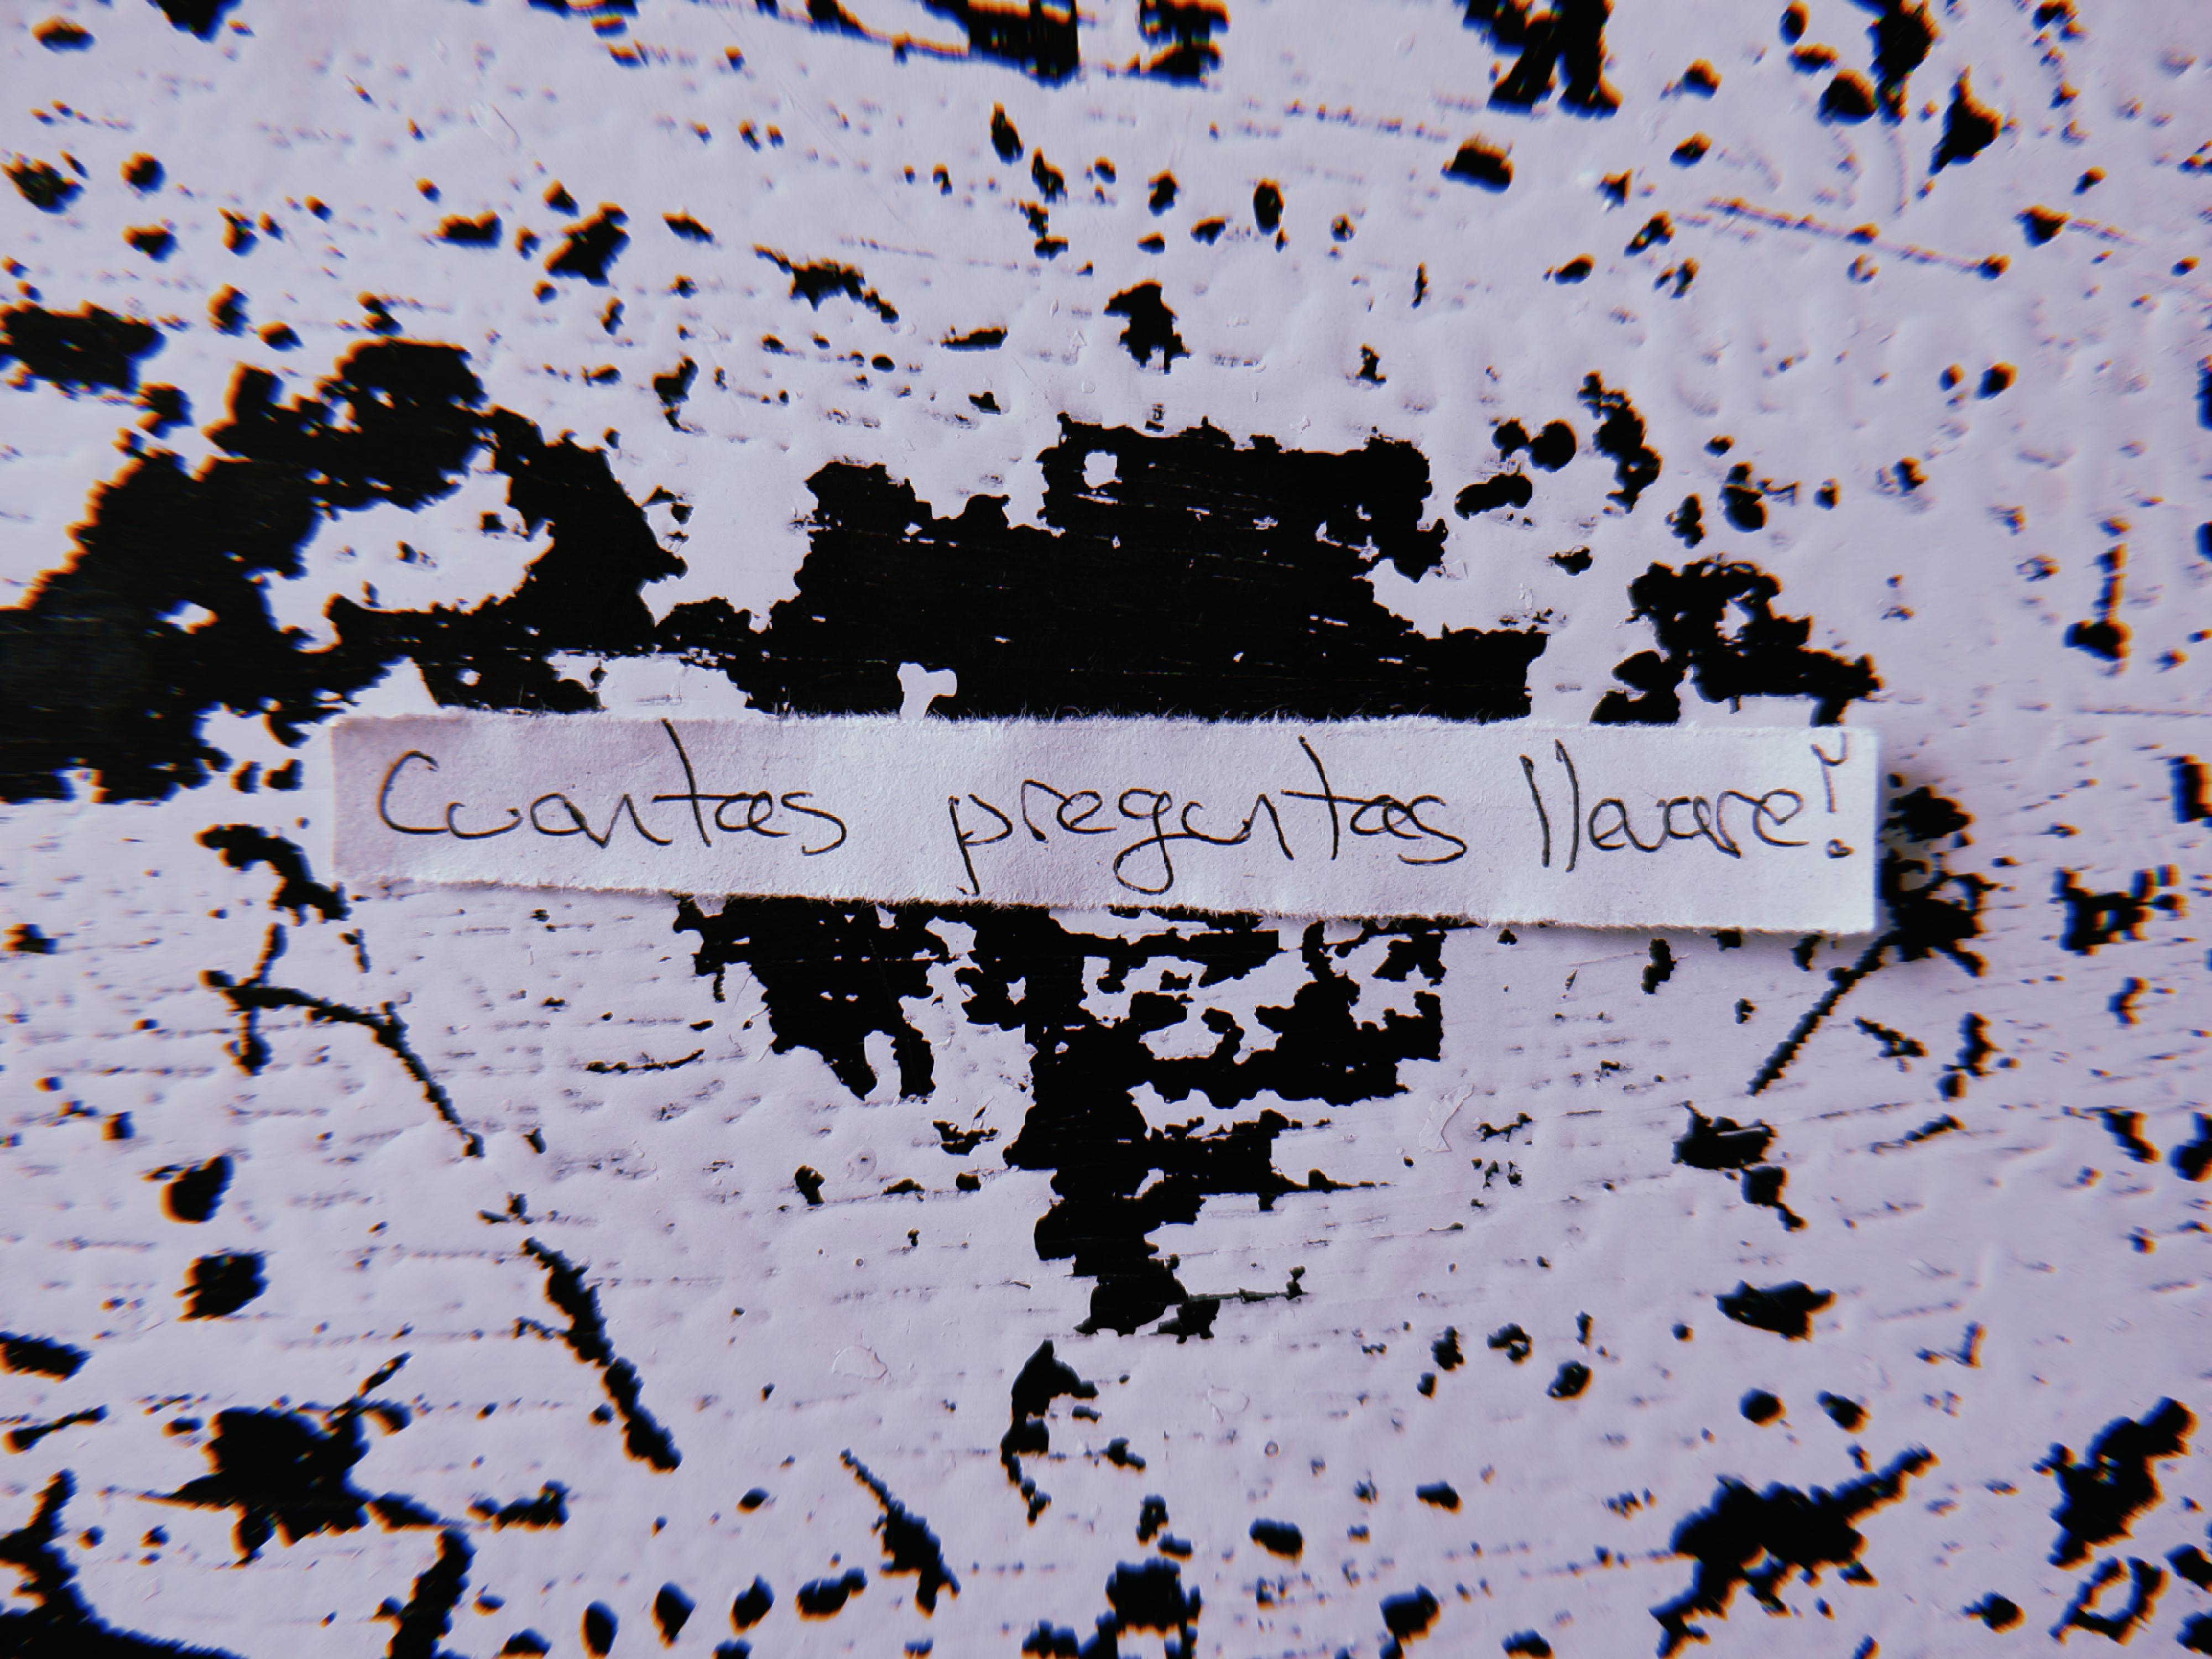 Cuantas preguntas llevare!